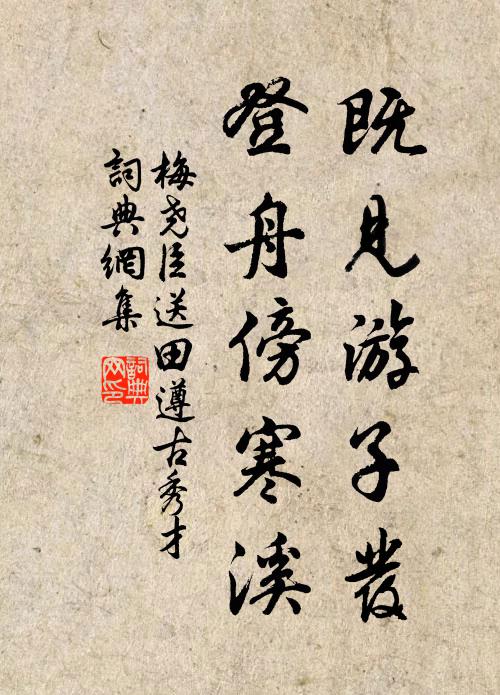 既見游子發
登舟傍寒溪
梅堯臣送田遵古秀才
詞典網集
詞典網印